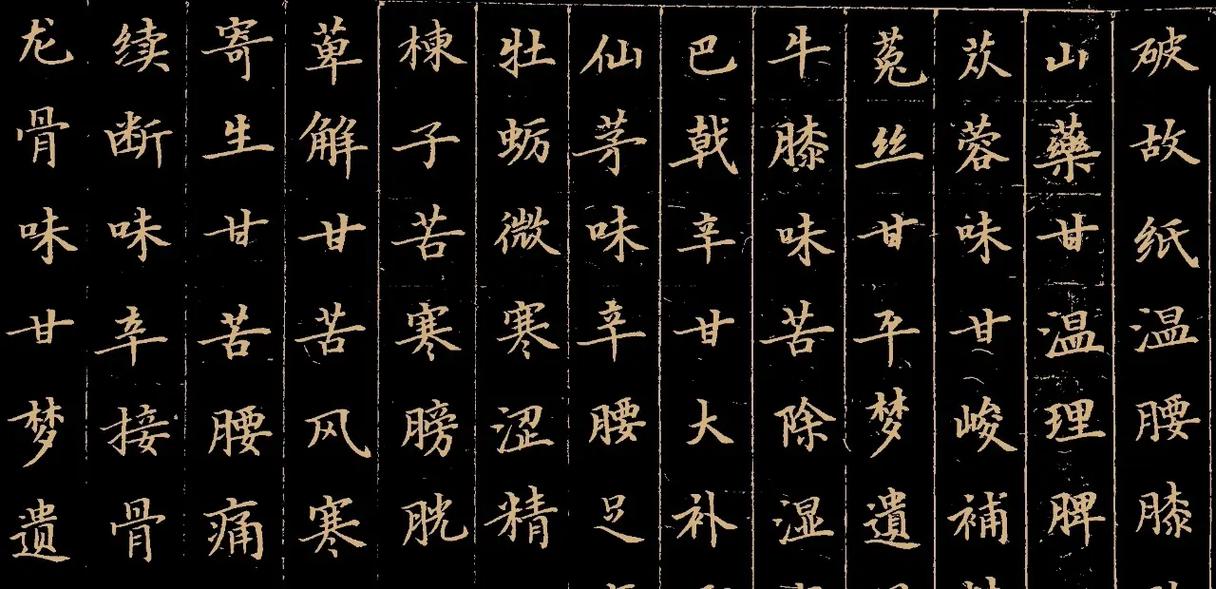 破故纸温腰膝
山藥甘温理脾
苁蓉味甘峻補
菟丝甘平梦遺
牛膝味苦除湿
巴戟辛甘大补
仙茅味辛腰足
牡蛎微寒涩精
楝子苦寒膀胱
萆解甘苦风寒
寄生甘苦腰痛
续断味辛接骨
龙骨味甘梦遗